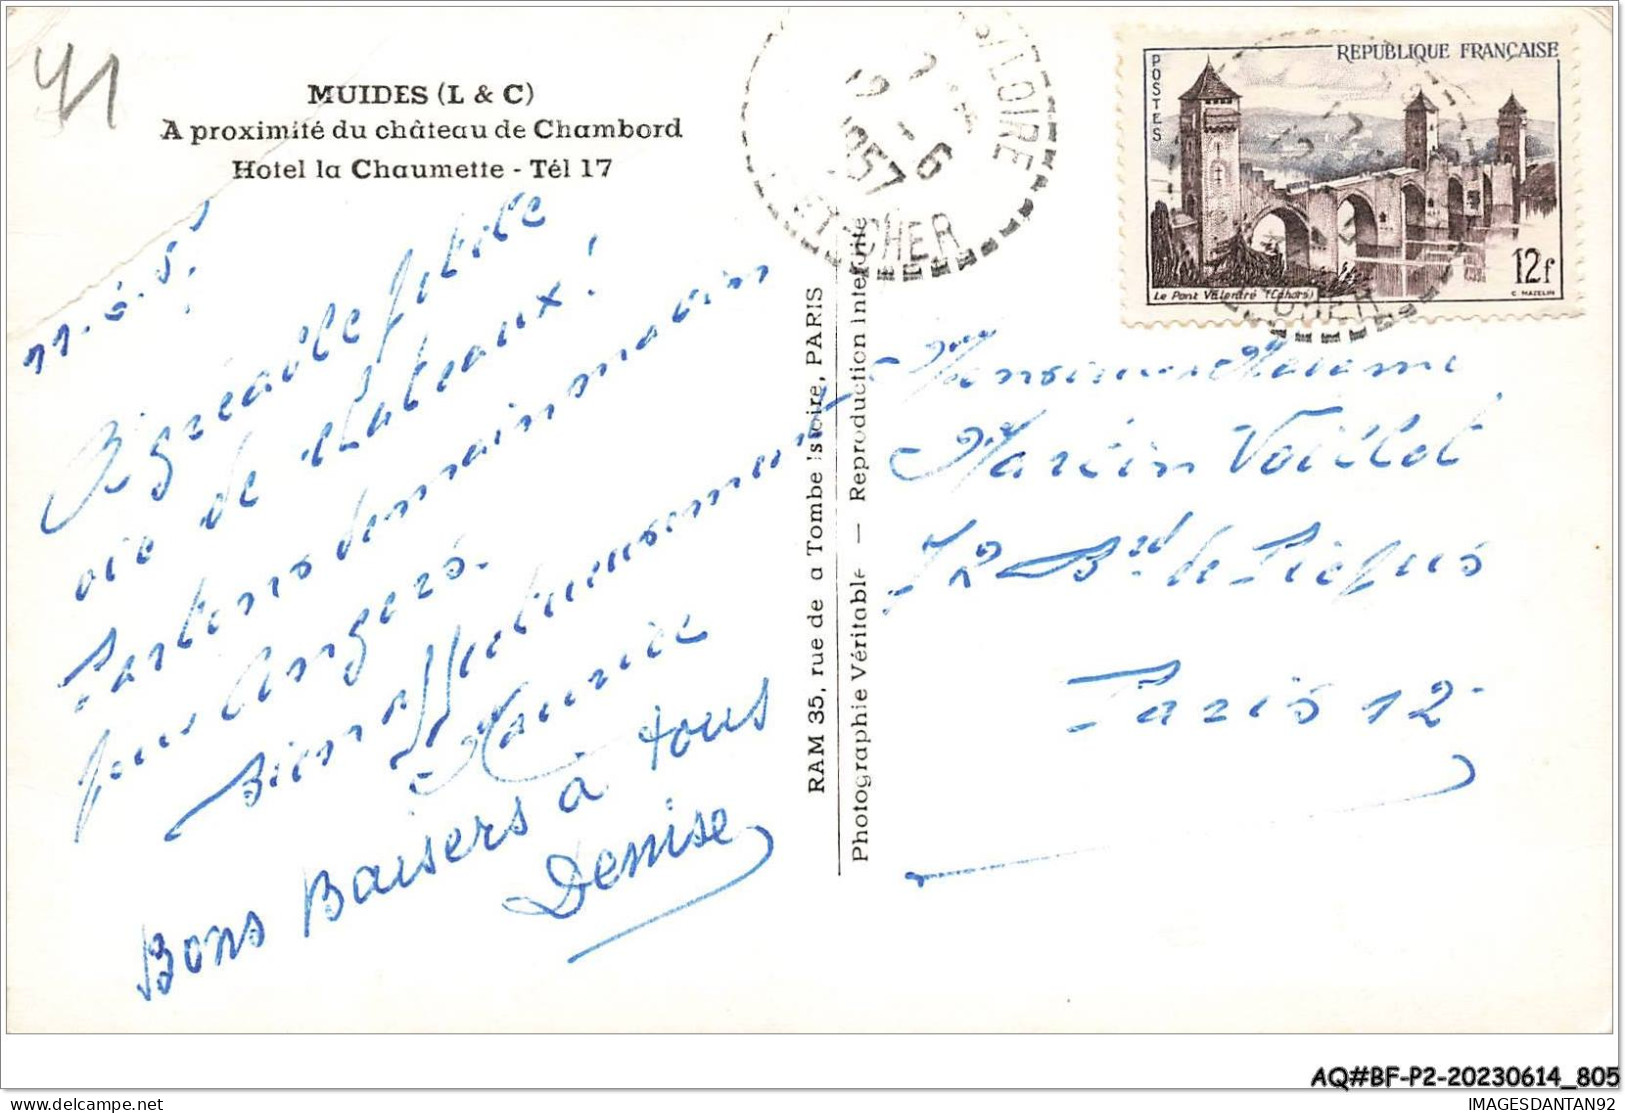 41
MUIDES (L & C)
A proximité du château de Chambord
Hotel la Chaumette - Tél 17
11.6.57
Agréable petite
vie de chateaux!
Partons demain matin
pour Angers.
Bien affectueusement
Maurice
Bons Baisers à tous
Denise
RAM 35, rue de la Tombe Issoire, PARIS
Photographie Véritable — Reproduction Interdite
S/LOIRE
12
1957
6
ET CHER
REPUBLIQUE FRANÇAISE
POSTES
12f
Le Pont Valentré (Cahors)
C. MAZELIN
CHER
Monsieur Madame
Martin Voillot
72 Bd de Picpus
Paris 12
AQ#BF-P2-20230614_805
IMAGESDANTAN92